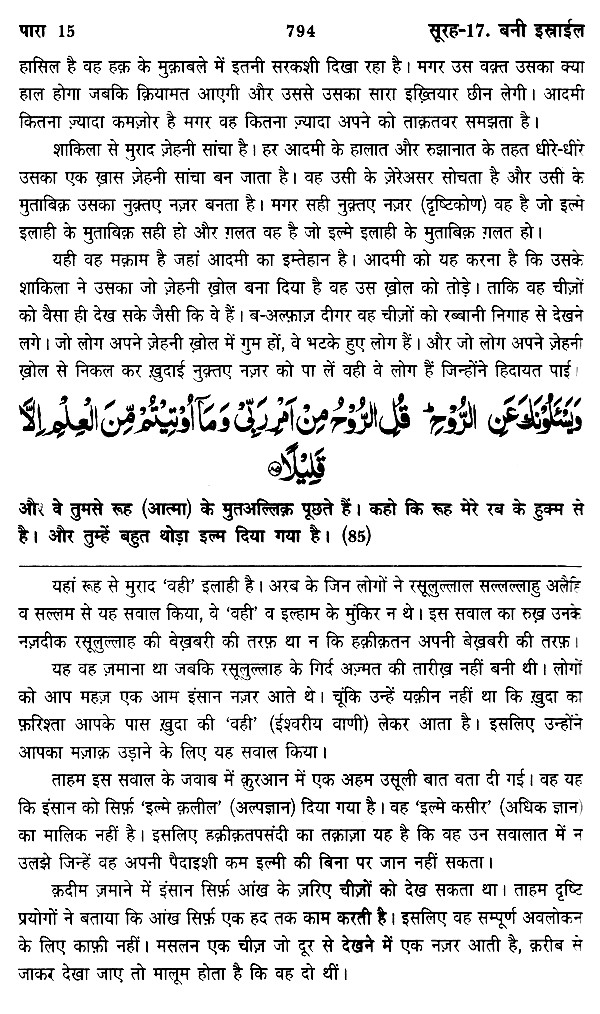 पारा 15 794 सूरह-17. बनी इस्राईल
हासिल है वह हक़ के मुक़ाबले में इतनी सरकशी दिखा रहा है। मगर उस वक़्त उसका क्या
हाल होगा जबकि क़ियामत आएगी और उससे उसका सारा इख़्तियार छीन लेगी। आदमी
कितना ज़्यादा कमज़ोर है मगर वह कितना ज़्यादा अपने को ताक़तवर समझता है।
शाकिला से मुराद ज़ेहनी सांचा है। हर आदमी के हालात और रुझानात के तहत धीरे-धीरे
उसका एक ख़ास ज़ेहनी सांचा बन जाता है। वह उसी के ज़ेरेअसर सोचता है और उसी के
मुताबिक़ उसका नुक़्तए नज़र बनता है। मगर सही नुक़्तए नज़र (दृष्टिकोण) वह है जो इल्मे
इलाही के मुताबिक़ सही हो और ग़लत वह है जो इल्मे इलाही के मुताबिक़ ग़लत हो।
यही वह मक़ाम है जहां आदमी का इम्तेहान है। आदमी को यह करना है कि उसके
शाकिला ने उसका जो ज़ेहनी ख़ोल बना दिया है वह उस ख़ोल को तोड़े। ताकि वह चीज़ों
को वैसा ही देख सके जैसी कि वे हैं। ब-अल्फ़ाज़ दीगर वह चीज़ों को रब्बानी निगाह से देखने
लगे। जो लोग अपने ज़ेहनी ख़ोल में गुम हों, वे भटके हुए लोग हैं। और जो लोग अपने ज़ेहनी
ख़ोल से निकल कर ख़ुदाई नुक़्तए नज़र को पा लें वही वे लोग हैं जिन्होंने हिदायत पाई।
وَيَسْـَٔلُوْنَكَ عَنِ الرُّوْحِ ۖ قُلِ الرُّوْحُ مِنْ اَمْرِ رَبِّيْ وَمَآ اُوْتِيْتُمْ مِّنَ الْعِلْمِ اِلَّا
قَلِيْلًا ۝٨٥
और वे तुमसे रूह (आत्मा) के मुतअल्लिक़ पूछते हैं। कहो कि रूह मेरे रब के हुक्म से
है। और तुम्हें बहुत थोड़ा इल्म दिया गया है। (85)
यहां रूह से मुराद ‘वही’ इलाही है। अरब के जिन लोगों ने रसूलुल्लाल सल्लल्लाहु अलैहि
व सल्लम से यह सवाल किया, वे ‘वही’ व इल्हाम के मुंकिर न थे। इस सवाल का रुख़ उनके
नज़दीक रसूलुल्लाह की बेख़बरी की तरफ़ था न कि हक़ीक़तन अपनी बेख़बरी की तरफ़।
यह वह ज़माना था जबकि रसूलुल्लाह के गिर्द अज़्मत की तारीख़ नहीं बनी थी। लोगों
को आप महज़ एक आम इंसान नज़र आते थे। चूंकि उन्हें यक़ीन नहीं था कि ख़ुदा का
फ़रिश्ता आपके पास ख़ुदा की ‘वही’ (ईश्वरीय वाणी) लेकर आता है। इसलिए उन्होंने
आपका मज़ाक़ उड़ाने के लिए यह सवाल किया।
ताहम इस सवाल के जवाब में क़ुरआन में एक अहम उसूली बात बता दी गई। वह यह
कि इंसान को सिर्फ़ ‘इल्मे क़लील’ (अल्पज्ञान) दिया गया है। वह ‘इल्मे कसीर’ (अधिक ज्ञान)
का मालिक नहीं है। इसलिए हक़ीक़तपसंदी का तक़ाज़ा यह है कि वह उन सवालात में न
उलझे जिन्हें वह अपनी पैदाइशी कम इल्मी की बिना पर जान नहीं सकता।
क़दीम ज़माने में इंसान सिर्फ़ आंख के ज़रिए चीज़ों को देख सकता था। ताहम दृष्टि
प्रयोगों ने बताया कि आंख सिर्फ़ एक हद तक काम करती है। इसलिए वह सम्पूर्ण अवलोकन
के लिए काफ़ी नहीं। मसलन एक चीज़ जो दूर से देखने में एक नज़र आती है, क़रीब से
जाकर देखा जाए तो मालूम होता है कि वह दो थीं।